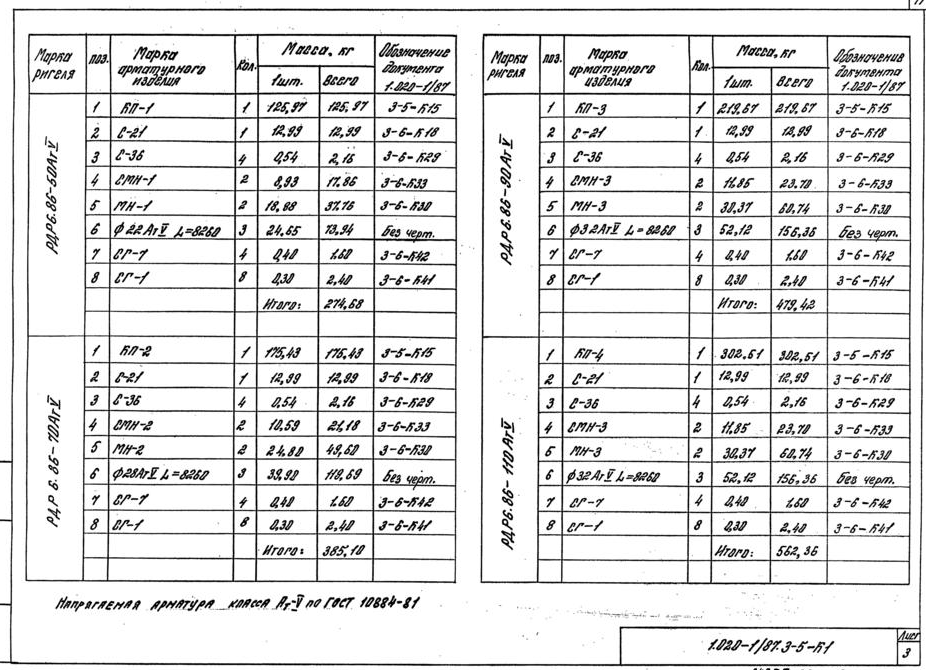 Марка ригеля | поз. | Марка арматурного изделия | Кол. | Масса, кг 1шт. | Всего | Обозначение документа 1.020-1/87
РДР6.86-50АтV
1 | КП-1 | 1 | 125,97 | 125,97 | 3-5-К15
2 | С-21 | 1 | 12,99 | 12,99 | 3-6-К18
3 | С-36 | 4 | 0,54 | 2,16 | 3-6-К29
4 | СМН-1 | 2 | 8,93 | 17,86 | 3-6-К33
5 | МН-1 | 2 | 18,88 | 37,76 | 3-6-К30
6 | ϕ22АтV L=8260 | 3 | 24,65 | 73,94 | Без черт.
7 | СГ-7 | 4 | 0,40 | 1,60 | 3-6-К42
8 | СГ-1 | 8 | 0,30 | 2,40 | 3-6-К41
Итого: | 274,68
РДР6.86-70АтV
1 | КП-2 | 1 | 175,43 | 175,43 | 3-5-К15
2 | С-21 | 1 | 12,99 | 12,99 | 3-6-К18
3 | С-36 | 4 | 0,54 | 2,16 | 3-6-К29
4 | СМН-2 | 2 | 10,59 | 21,18 | 3-6-К33
5 | МН-2 | 2 | 24,80 | 49,60 | 3-6-К30
6 | ϕ28АтV L=8260 | 3 | 39,90 | 119,69 | Без черт.
7 | СГ-7 | 4 | 0,40 | 1,60 | 3-6-К42
8 | СГ-1 | 8 | 0,30 | 2,40 | 3-6-К41
Итого: | 385,10
Марка ригеля | поз. | Марка арматурного изделия | Кол. | Масса, кг 1шт. | Всего | Обозначение документа 1.020-1/87
РДР6.86-90АтV
1 | КП-3 | 1 | 219,67 | 219,67 | 3-5-К15
2 | С-21 | 1 | 12,99 | 12,99 | 3-6-К18
3 | С-36 | 4 | 0,54 | 2,16 | 3-6-К29
4 | СМН-3 | 2 | 11,85 | 23,70 | 3-6-К33
5 | МН-3 | 2 | 30,37 | 60,74 | 3-6-К30
6 | ϕ32АтV L=8260 | 3 | 52,12 | 156,36 | Без черт.
7 | СГ-7 | 4 | 0,40 | 1,60 | 3-6-К42
8 | СГ-1 | 8 | 0,30 | 2,40 | 3-6-К41
Итого: | 479,42
РДР6.86-110АтV
1 | КП-4 | 1 | 302,61 | 302,61 | 3-5-К15
2 | С-21 | 1 | 12,99 | 12,99 | 3-6-К18
3 | С-36 | 4 | 0,54 | 2,16 | 3-6-К29
4 | СМН-3 | 2 | 11,85 | 23,70 | 3-6-К33
5 | МН-3 | 2 | 30,37 | 60,74 | 3-6-К30
6 | ϕ32АтV L=8260 | 3 | 52,12 | 156,36 | Без черт.
7 | СГ-7 | 4 | 0,40 | 1,60 | 3-6-К42
8 | СГ-1 | 8 | 0,30 | 2,40 | 3-6-К41
Итого: | 562,36
Напрягаемая арматура класса Ат-V по ГОСТ 10884-81
1.020-1/87.3-5-К1
Лист
3